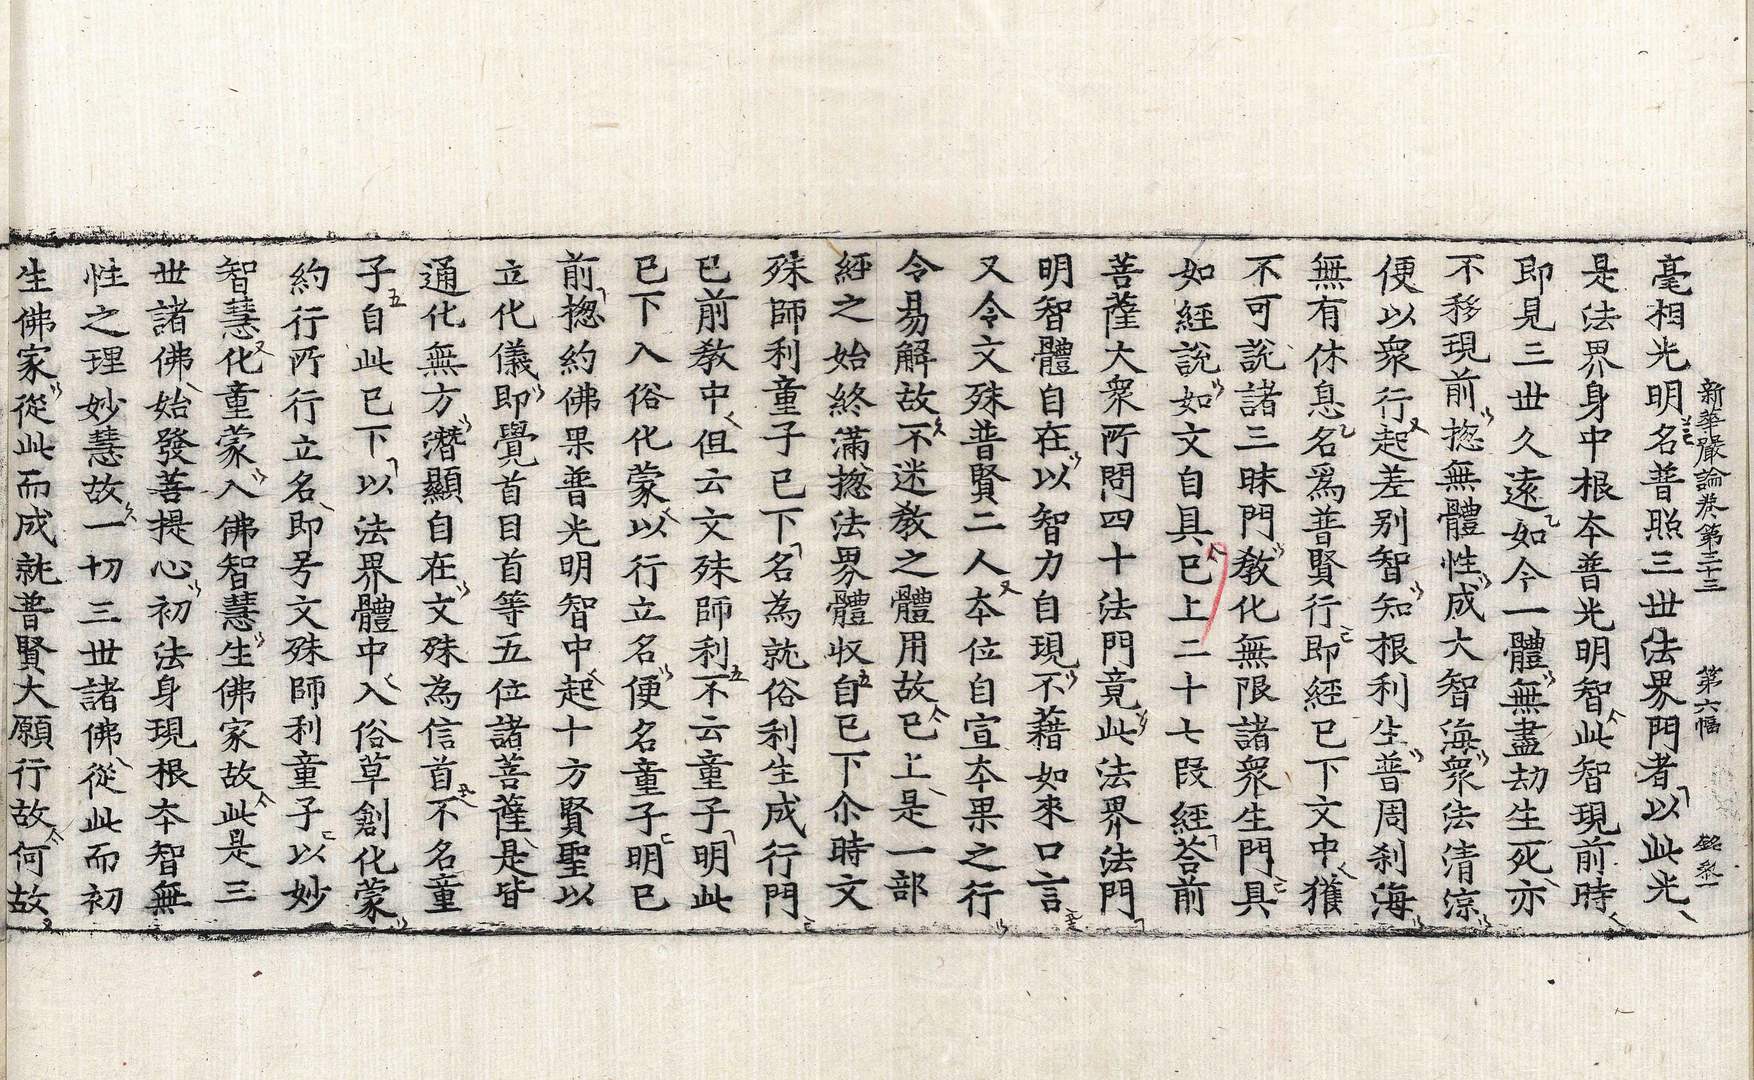 新華嚴論卷第三十三　第六幅　銘氶一
毫相光明名普照三世法界門者以此光
是法界身中根本普光明智此智現前時
即見三世久遠如今一體無盡劫生死亦
不移現前揔無體性成大智海衆法清涼
便以衆行起差别智知根利生普周刹海
無有休息名爲普賢行即經已下文中獲
不可說諸三昧門敎化無限諸衆生門具
如經說如文自具已上二十七段經荅前
菩薩大衆所問四十法門竟此法界法門
明智體自在以智力自現不藉如來口言
又令文殊普賢二人本位自宣本果之行
令易解故不迷敎之體用故已上是一部
經之始終滿揔法界體收自已下尒時文
殊師利童子已下名為就俗利生成行門
已前敎中但云文殊師利不云童子明此
已下入俗化蒙以行立名便名童子明已
前揔約佛果普光明智中起十方賢聖以
立化儀即覺首目首等五位諸菩薩是皆
通化無方潛顯自在文殊為信首不名童
子自此已下以法界體中入俗草創化蒙
約行所行立名即号文殊師利童子以妙
智慧化童蒙入佛智慧生佛家故此是三
世諸佛始發菩提心初法身現根本智無
性之理妙慧故一切三世諸佛從此而初
生佛家從此而成就普賢大願行故何故